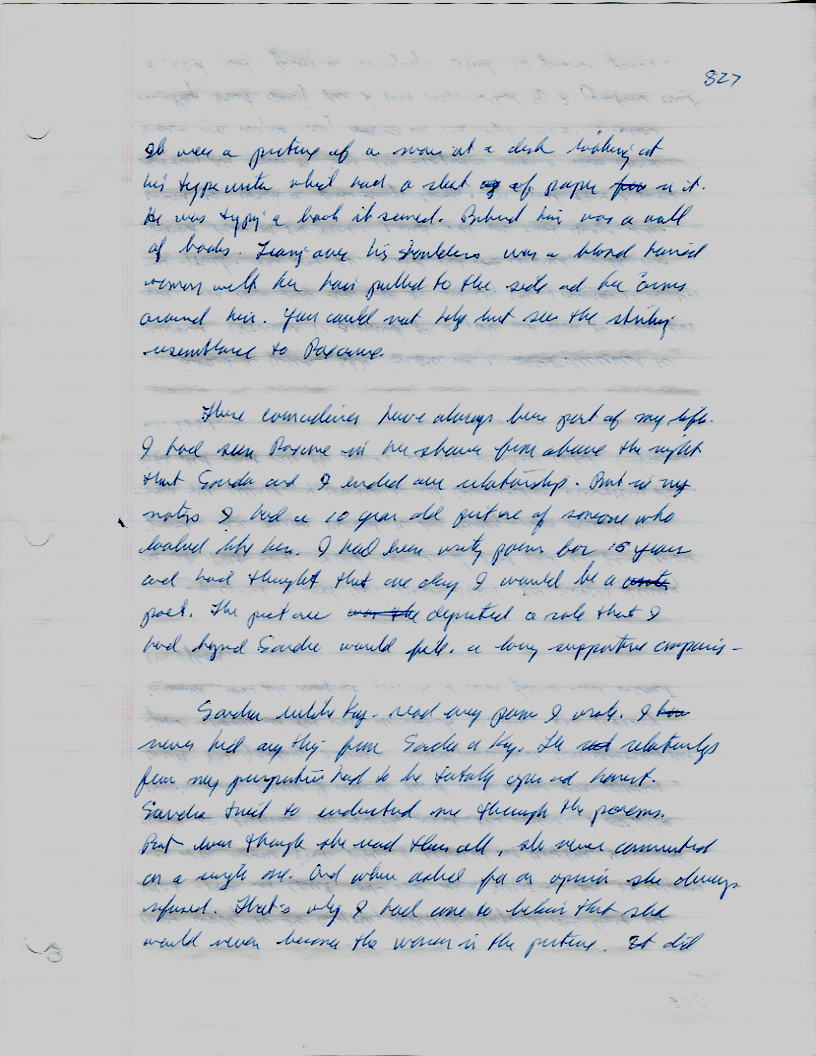 827
It was a picture of a man at a desk looking at
his typewriter what had a sheet of paper in it.
He was typing a book it seemed. Behind him was a wall
of books. Leaning over his shoulders was a blond haired
woman with her hair pulled to the side and her arms
around him. You could not help but see the striking
resemblance to Roxanne.
These coincidences have always been part of my life.
I had seen Roxanne in her shower from above the night
that Sandra and I ended our relationship. But in my
notes I had a 10 year old picture of someone who
looked like her. I had been writing poems for 15 years
and had thought that one day I would be a
poet. The picture depicted a role that I
had hoped Sandra would fill. a loving supportive companion -
Sandra unlike Kay. read every poem I wrote. I
never hid anything from Sandra or Kay. The relationships
from my perspective had to be totally open and honest.
Sandra tried to understand me through the poems.
But even though she read them all, she never commented
on a single one. And when asked for an opinion she always
refused. That's why I had come to believe that she
would never become the woman in the picture. It did